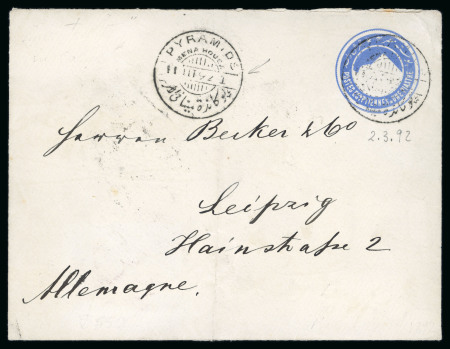 PYRAMIDS
MENA HOUSE
2.3.92
Herren Becker & Co
Leipzig
Hainstraße 2
Allemagne.